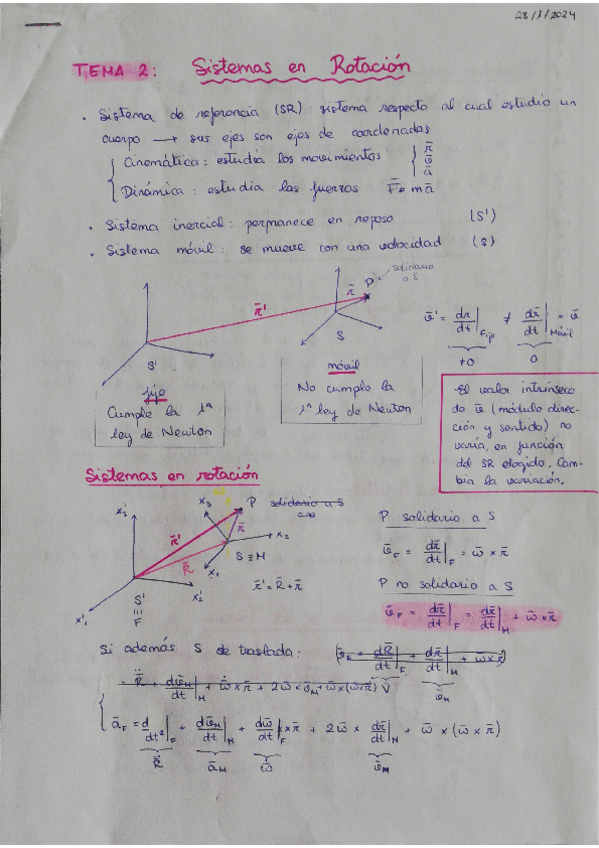 23/1/2024
TEMA 2: Sistemas en Rotación
• Sistema de referencia (SR): sistema respecto al cual estudio un
cuerpo → sus ejes son ejes de coordenadas
Cinemática: estudia los movimientos { r̄ v̄ ā
Dinámica: estudia las fuerzas F̄ = m ā
• Sistema inercial: permanece en reposo (S')
• Sistema móvil: se mueve con una velocidad (S)
solidario a S
P
r̄
r̄'
S'
S
v̄' = dr̄/dt|Fijo ≠ dr̄/dt|Móvil = v̄
≠0 0
fijo
Cumple la 1ª
ley de Newton
móvil
No cumple la
1ª ley de Newton
El valor intrínseco
de v̄ (módulo direc-
ción y sentido) no
varía, en función
del SR elegido. Cam-
bia la variación.
Sistemas en rotación
x3' x3 P solidario a S
r̄' r̄ x2
R̄ S ≡ M
x1
S' x2' r̄' = R̄ + r̄
x1' F
P solidario a S
v̄F = dr̄/dt|F = w̄ × r̄
P no solidario a S
v̄F = dr̄/dt|F = dr̄/dt|M + w̄ × r̄
Si además S se traslada: v̄F = dR̄/dt|F + dr̄/dt|M + w̄ × r̄
v̄M
= R̄̈ + dv̄M/dt|M + w̄̇ × r̄ + 2w̄ × v̄M + w̄ × (w̄ × r̄)
āF = d/dt²|F + dv̄M/dt|M + dw̄/dt|F × r̄ + 2w̄ × dr̄/dt|M + w̄ × (w̄ × r̄)
R̄̈ āM w̄̇ v̄M